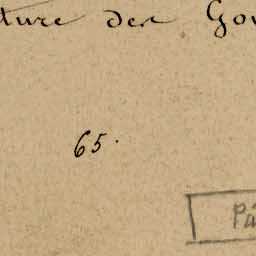 ture der Gou
65.
Pä